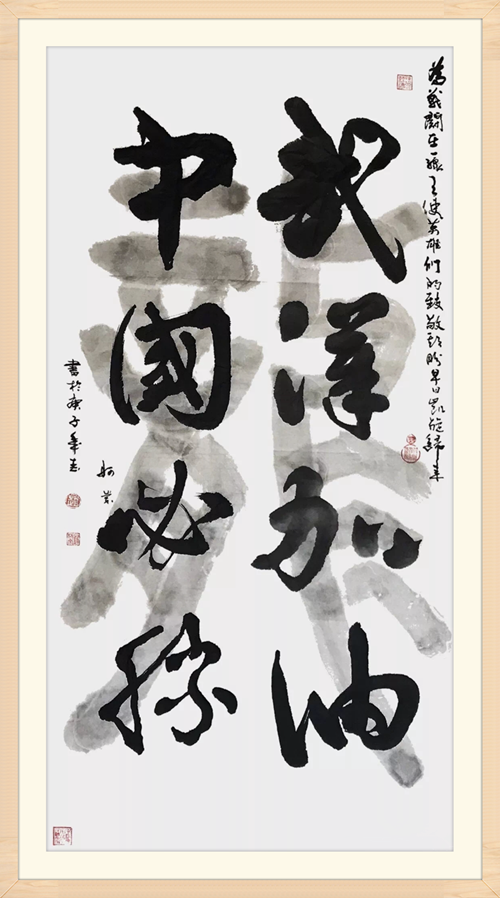 為戰鬪在一線天使英雄們的致敬期盼早日凱旋歸來
武漢加油
中國必勝
書於庚子年春